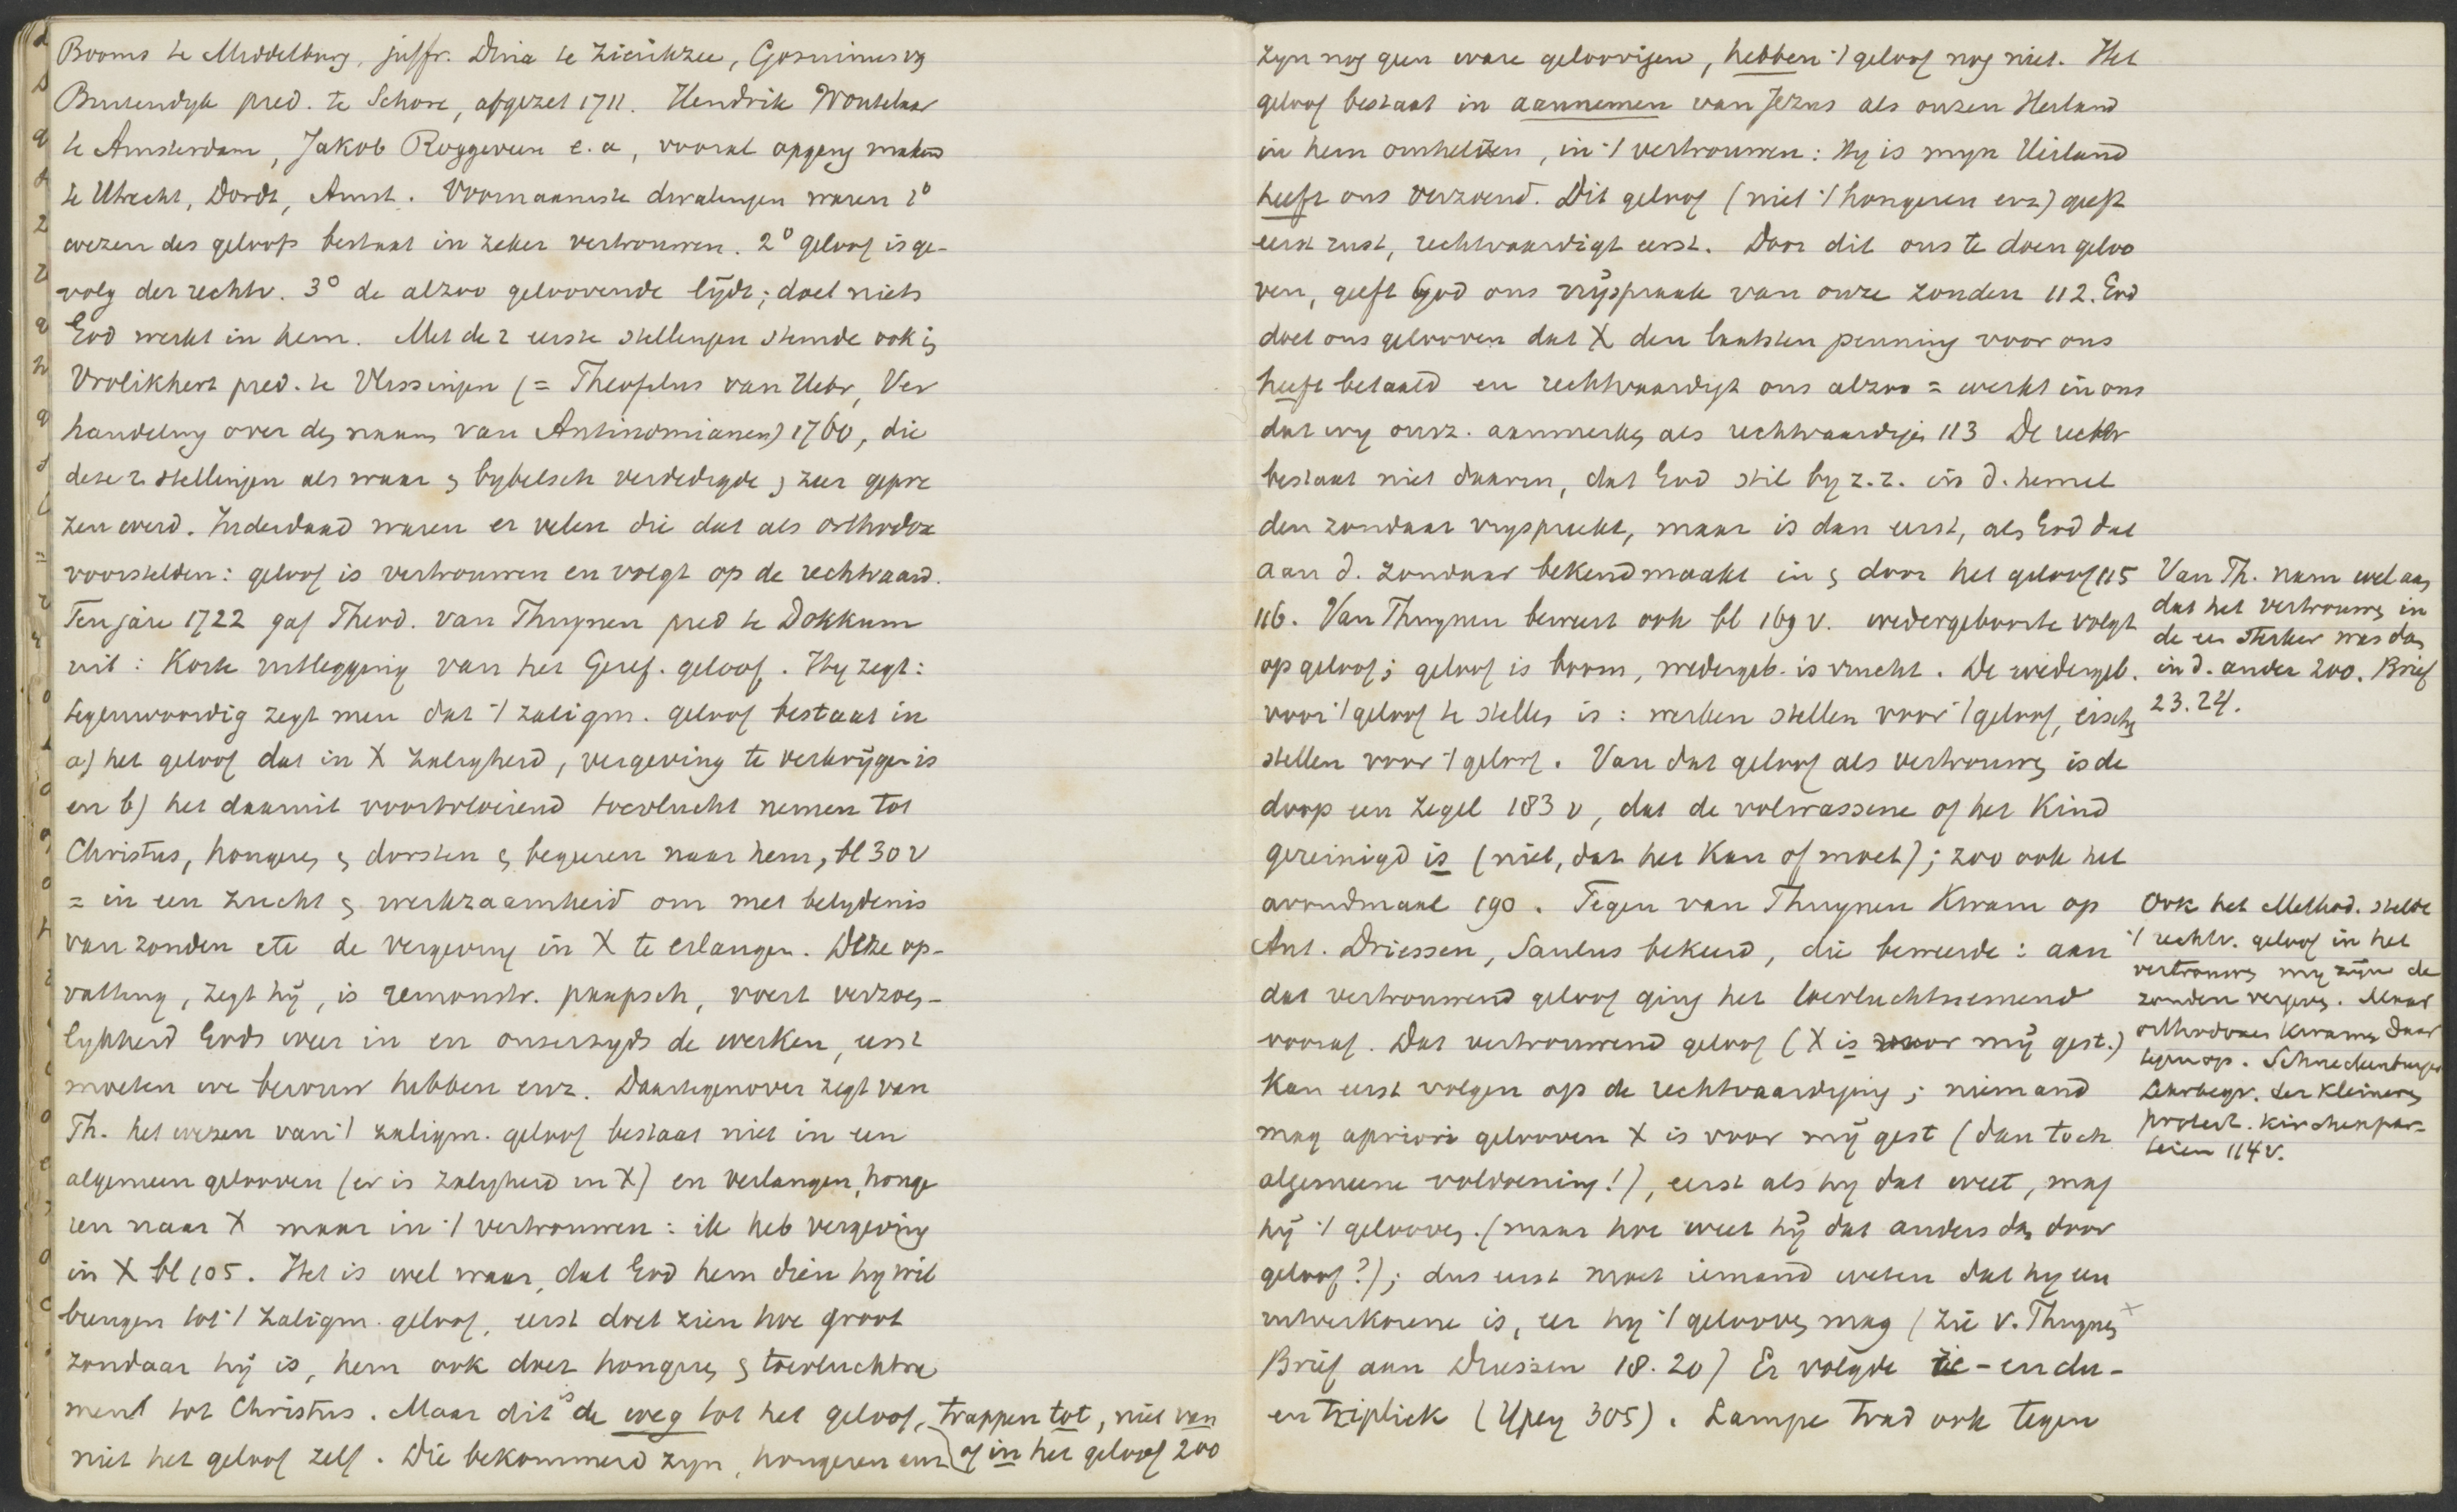 Booms te Middelburg, juffr. Dina te Zierikzee, Gosuinus v
Buitendyk pred. te Schore, afgezet 1711. Hendrik Woutelaar
te Amsterdam, Jakob Roggeveen e.a, vooral opgang makend
te Utrecht, Dordt, Amst. Voornaamste dwalingen waren 1°
wezen des geloofs bestaat in zeker vertrouwen. 2° geloof is ge-
volg der rechtv. 3° de alzoo geloovende lydt; doet niets
God werkt in hem. Met de 2 eerste stellingen stemde ook in
Vrolikhert pred. te Vlissingen (= Theofilus van Uebr, Ver
handeling over den naam van Antinomianen) 1760, die
deze 2 stellingen als waar en bybelsch verdedigde en zeer gepre
zen werd. Inderdaad waren er velen die dat als orthodox
voorstelden: geloof is vertrouwen en volgt op de rechtvaard.
Ten jare 1722 gaf Theod. van Thuynen pred te Dokkum
uit: Korte uitlegging van het Geref. geloof. Hy zegt:
tegenwoordig zegt men dat 't zaligm. geloof bestaat in
a) het geloof dat in X zaligheid, vergeving te verkrijgen is
en b) het daaruit voortvloeiend toevlucht nemen tot
Christus, hongeren en dorsten en begeeren naar hem, bl 30 v
= in een zucht en werkzaamheid om met belydenis
van zonden etc de vergeving in X te erlangen. Deze op-
vatting, zegt hij, is remonstr. paapsch, voert verzoen-
lykheid Gods weer in en onzerzyds de werken, eerst
moeten we berouw hebben enz. Daartegenover zegt van
Th. het wezen van 't zaligm. geloof bestaat niet in een
algemeen gelooven (er is zaligheid in X) en verlangen, honge
ren naar X maar in 't vertrouwen: ik heb vergeving
in X bl 105. Het is wel waar, dat God hem dien hy wil
brengen tot 't zaligm. geloof, eerst doet zien hoe groot
zondaar hij is, hem ook doet hongeren en toevluchtne
mend tot Christus. Maar dit is de weg tot het geloof, trappen tot, niet van
niet het geloof zelf. Die bekommerd zyn, hongeren enz of in het geloof 200
zyn nog geen ware geloovigen, hebben 't geloof nog niet. Het
geloof bestaat in aannemen van Jezus als onzen Heiland
in hem omhelzen, in 't vertrouwen: Hy is myn Heiland
heeft ons verzoend. Dit geloof (niet 't hongeren enz) geeft
eerst rust, rechtvaardigt eerst. Door dit ons te doen geloo
ven, geeft God ons vrijspraak van onze zonden 112. God
doet ons gelooven dat X den laatsten penning voor ons
heeft betaald en rechtvaardigt ons alzoo = werkt in ons
dat wy onsz. aanmerken als rechtvaardigen 113 De rechtv
bestaat niet daarin, dat God stil by z.z. in d. hemel
den zondaar vryspreekt, maar is dan eerst, als God dat
aan d. zondaar bekendmaakt in en door het geloof 115
116. Van Thuynen beweert ook bl 169 v. wedergeboorte volgt
op geloof; geloof is boom, wedergeb. is vrucht. De wedergeb.
voor 't geloof te stellen is: werken stellen voor 't geloof, eischen
stellen voor 't geloof. Van dat geloof als vertrouwen is de
doop een zegel 183 v, dat de volwassene of het kind
gereinigd is (niet, dat het kan of moet); zoo ook het
avondmaal 190. Tegen van Thuynen kwam op
Ant. Driessen, Saulus bekeerd, die beweerde: aan
dat vertrouwend geloof ging het toevluchtnemend
vooraf. Dat vertrouwend geloof (X is voor mij gest.)
kan eerst volgen op de rechtvaardiging; niemand
mag apriori gelooven X is voor mij gest (dan toch
algemeene voldoening!), eerst als hy dat weet, mag
hij 't gelooven. (maar hoe weet hij dat anders dan door
geloof?); dus eerst moet iemand weten dat hy een
uitverkorene is, eer hy 't gelooven mag (zie v. Thuynen
Brief aan Driessen 18. 20) Er volgde re- en du-
en triplick (Ypey 305). Lampe trad ook tegen
Van Th. nam wel aan
dat het vertrouwen in
de een sterker was dan
in d. ander 200. Brief
23.24.
Ook het Method. stelde
't rechtv. geloof in het
vertrouwen mij zijn de
zonden vergeven. Maar
orthodoxen kwamen daar
tegen op. Schneckenburger
Lehrbegr. der kleineren
protest. Kirchenpar-
teien 114 v.